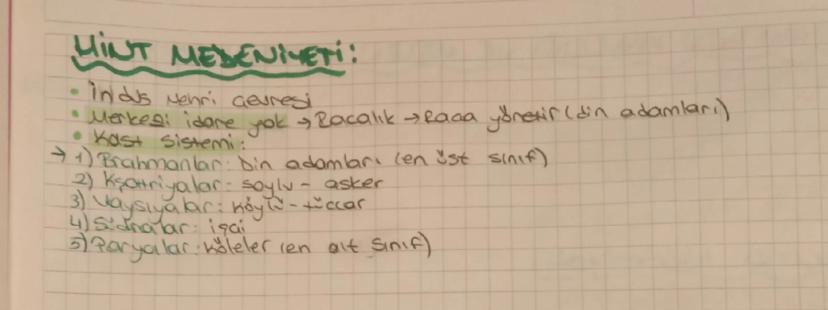 HİNT MEDENİYETİ:
• İndus Nehri Çevresi
• Merkezi idare yok → Racalık → Raca yönetir (din adamları)
• Kast Sistemi:
→ 1) Brahmanlar: Din adamları (en üst sınıf)
2) Kşatriyalar: soylu - asker
3) Vaysiyalar: köylü - tüccar
4) Südralar: işçi
5) Paryalar: köleler (en alt sınıf)